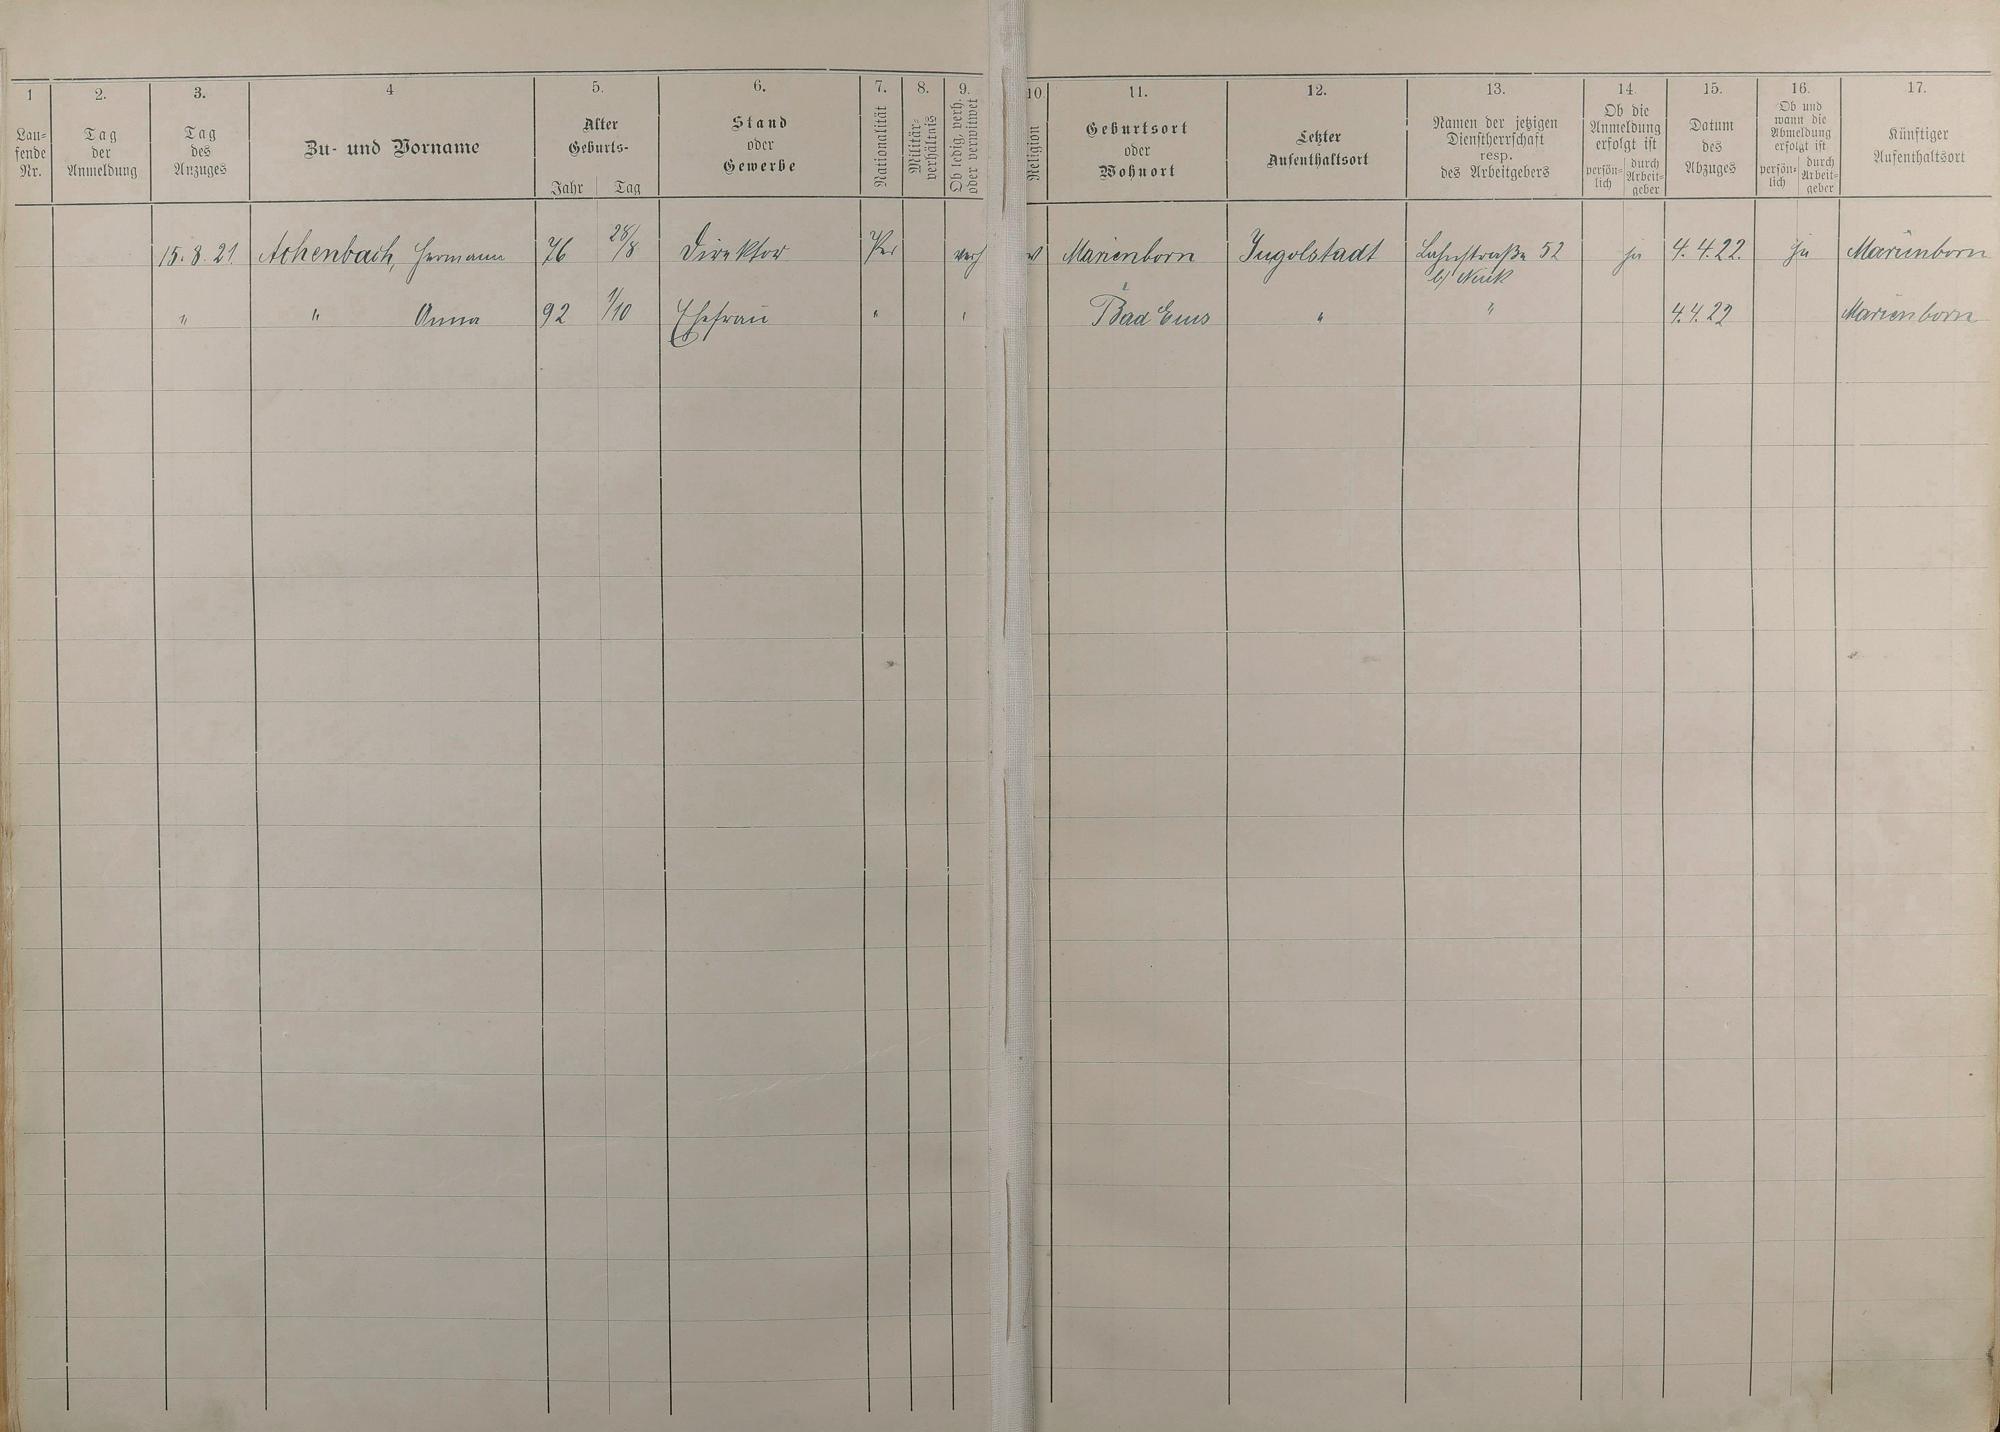 1 2. 3. 4 5. 6. 7. 8. 9. 10. 11. 12. 13. 14. 15. 16. 17.
Lau-
fende
Nr.
Tag
der
Anmeldung
Tag
des
Anzuges
Zu- und Vorname
Alter
Geburts-
Jahr Tag
Stand
oder
Gewerbe
Nationalität
Militär-
verhältnis
Ob ledig, verh.
oder verwitwet
Religion
Geburtsort
oder
Wohnort
Letzter
Aufenthaltsort
Namen der jetzigen
Dienstherrschaft
resp.
des Arbeitgebers
Ob die
Anmeldung
erfolgt ist
persön-
lich
durch
Arbeit-
geber
Datum
des
Abzuges
Ob und
wann die
Abmeldung
erfolgt ist
persön-
lich
durch
Arbeit-
geber
Künftiger
Aufenthaltsort
15.8.21. Achenbach, Hermann 76 28/8 Direktor verh Marienborn Ingolstadt Lahnstraße 52 ja 4.4.22. ja Marienborn
b/
" " Anna 92 1/10 Ehefrau " " Bad Ems " " 4.4.22 Marienborn